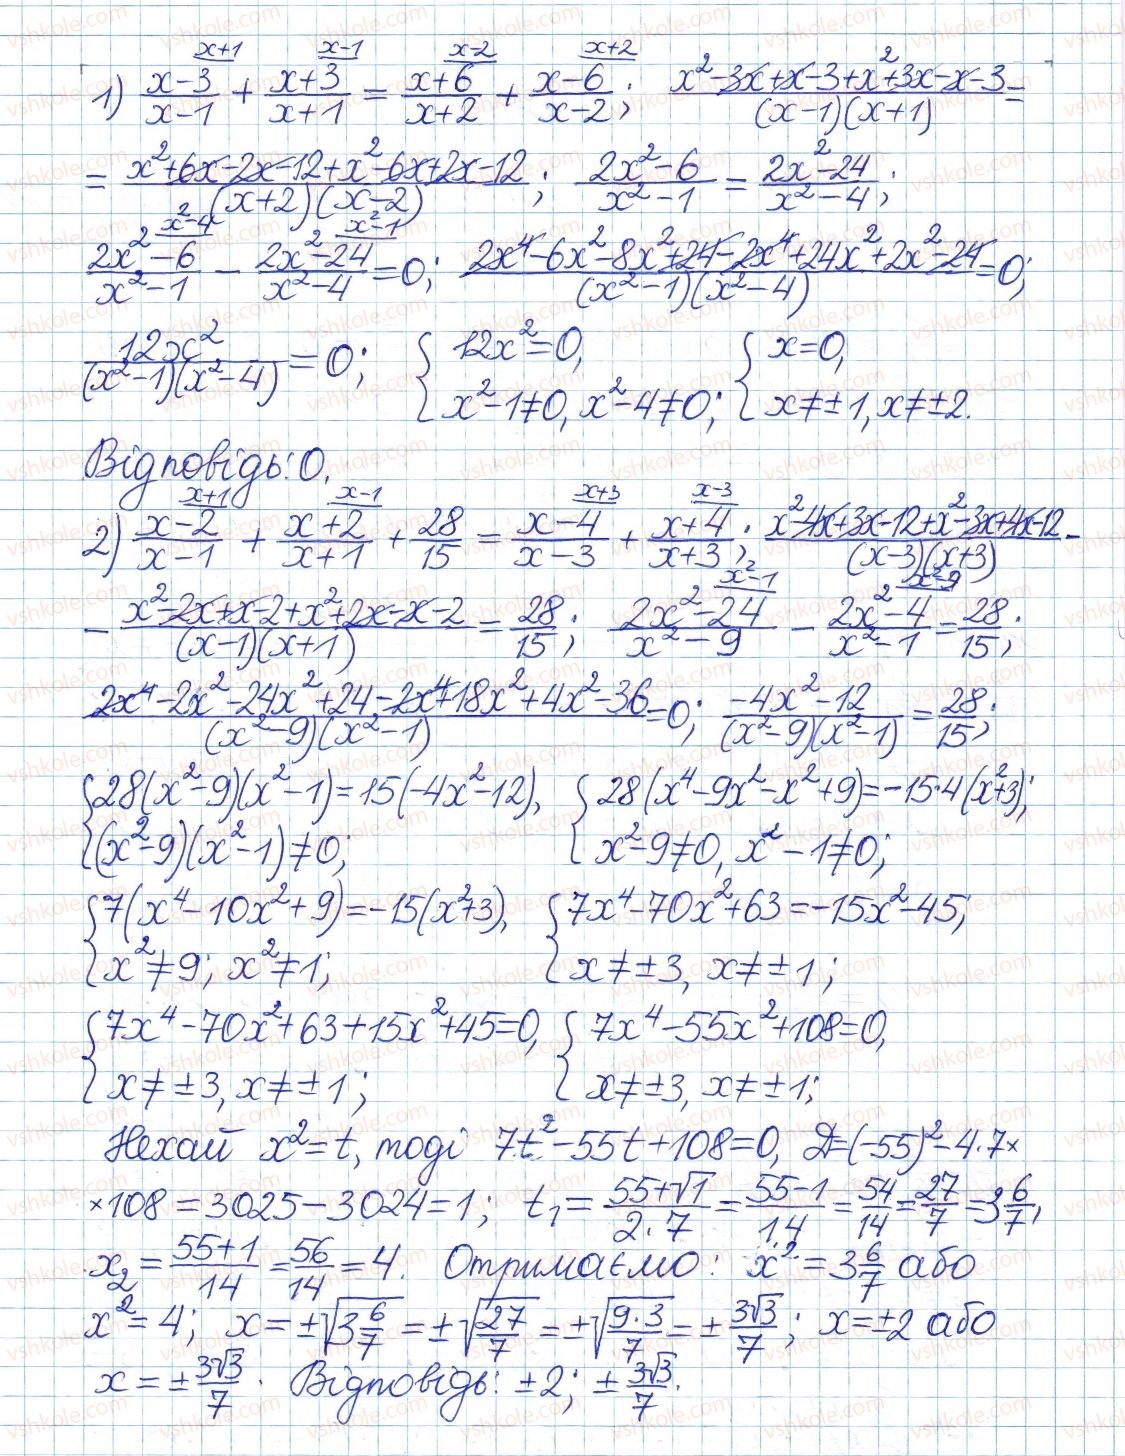 1) (x-3)/(x-1) + (x+3)/(x+1) = (x+6)/(x+2) + (x-6)/(x-2); (x²-3x+x-3+x²+3x-x-3)/((x-1)(x+1)) =
= (x²+6x-2x-12+x²-6x+2x-12)/((x+2)(x-2)); (2x²-6)/(x²-1) = (2x²-24)/(x²-4);
(2x²-6)/(x²-1) - (2x²-24)/(x²-4) = 0; (2x⁴-6x²-8x²+24-2x⁴+24x²+2x²-24)/((x²-1)(x²-4)) = 0;
12x²/((x²-1)(x²-4)) = 0; { 12x²=0, x²-1≠0, x²-4≠0; { x=0, x≠±1, x≠±2.
Відповідь: 0.
2) (x-2)/(x-1) + (x+2)/(x+1) + 28/15 = (x-4)/(x-3) + (x+4)/(x+3); (x²-4x+3x-12+x²-3x+4x-12)/((x-3)(x+3)) -
- (x²-2x+x-2+x²+2x-x-2)/((x-1)(x+1)) = 28/15; (2x²-24)/(x²-9) - (2x²-4)/(x²-1) = 28/15;
(2x⁴-2x²-24x²+24-2x⁴+18x²+4x²-36)/((x²-9)(x²-1)) = 0; (-4x²-12)/((x²-9)(x²-1)) = 28/15;
{ 28(x²-9)(x²-1)=15(-4x²-12), { 28(x⁴-9x²-x²+9)=-15·4(x²+3);
(x²-9)(x²-1)≠0; x²-9≠0, x²-1≠0;
{ 7(x⁴-10x²+9)=-15(x²+3), { 7x⁴-70x²+63=-15x²-45;
x²≠9; x²≠1; x≠±3, x≠±1;
{ 7x⁴-70x²+63+15x²+45=0, { 7x⁴-55x²+108=0,
x≠±3, x≠±1; x≠±3, x≠±1;
Нехай x²=t, тоді 7t²-55t+108=0, Д=(-55)²-4·7×
×108=3025-3024=1; t₁ = (55+√1)/(2·7) = (55-1)/14 = 54/14 = 27/7 = 3 6/7,
x₂ = (55+1)/14 = 56/14 = 4. Отримаємо: x² = 3 6/7 або
x²=4; x = ±√(3 6/7) = ±√(27/7) = ±√(9·3/7) = ± 3√3/7; x=±2 або
x = ± 3√3/7. Відповідь: ±2; ± 3√3/7.